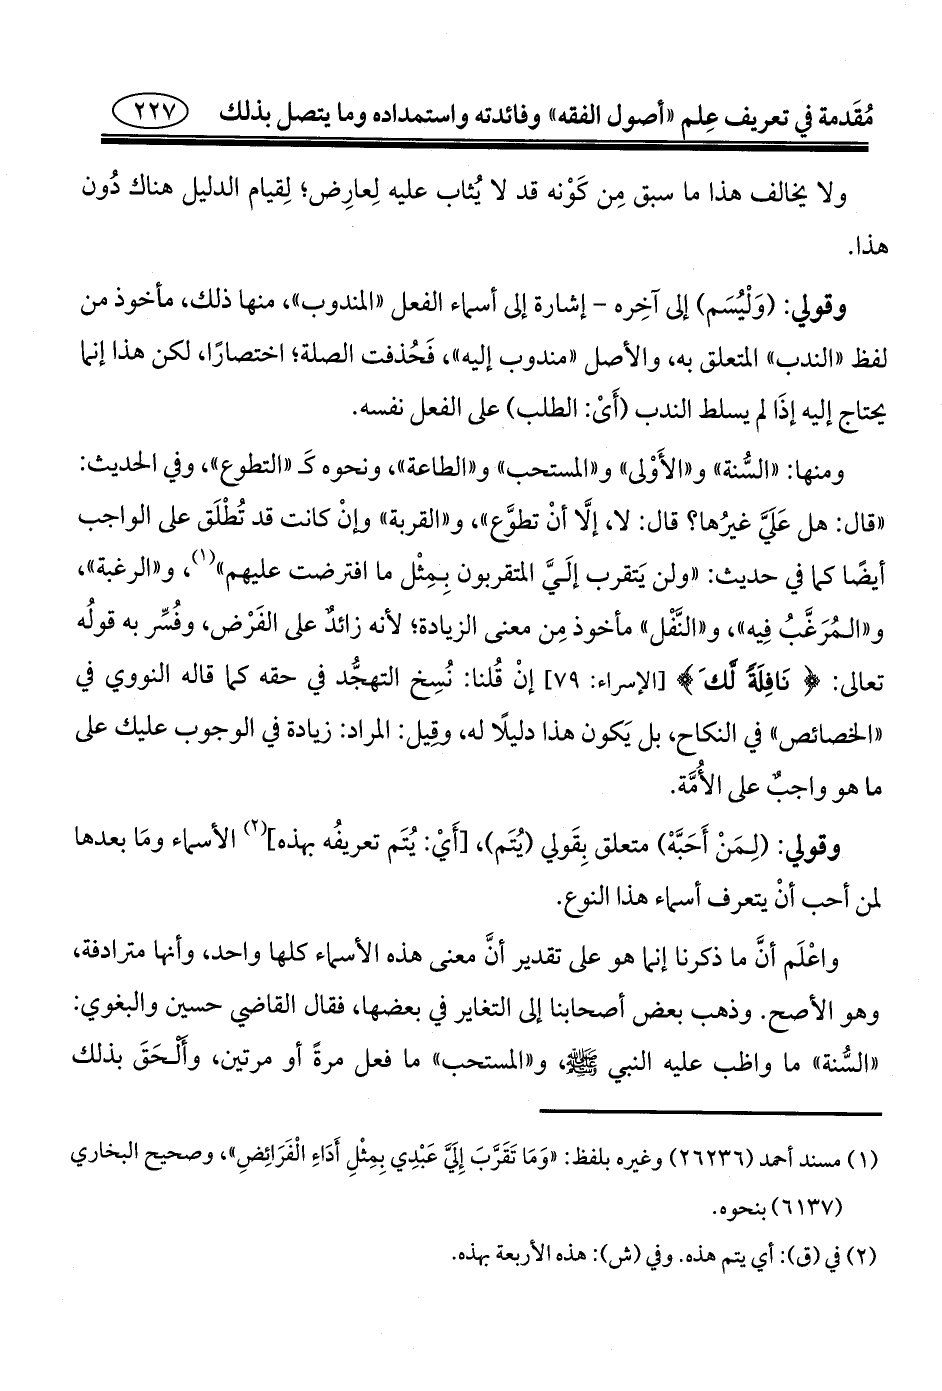 مُقَدمة في تعريف عِلم «أصول الفقه» وفائدته واستمداده وما يتصل بذلك ٢٢٧
ولا يخالف هذا ما سبق مِن كَوْنه قد لا يُثاب عليه لِعارِض؛ لِقيام الدليل هناك دُون
هذا.
وقولي: (وَلْيُسَم) إلى آخِره – إشارة إلى أسماء الفعل «المندوب»، منها ذلك، مأخوذ من
لفظ «الندب» المتعلق به، والأصل «مندوب إليه»، فَحُذفت الصلة؛ اختصارًا، لكن هذا إنما
يحتاج إليه إذَا لم يسلط الندب (أَيْ: الطلب) على الفعل نفسه.
ومنها: «السُّنة» و«الأَوْلى» و«المستحب» و«الطاعة»، ونحوه كَـ «التطوع»، وفي الحديث:
«قال: هل عَلَيَّ غيرُها؟ قال: لا، إلَّا أنْ تطوَّع»، و«القربة» وإنْ كانت قد تُطْلَق على الواجب
أيضًا كما في حديث: «ولن يَتقرب إلَيَّ المتقربون بِمِثْل ما افترضت عليهم»(١)، و«الرغبة»،
و«المُرَغَّبُ فِيه»، و«النَّفْل» مأخوذ مِن معنى الزيادة؛ لأنه زائدٌ على الفَرْض، وفُسِّر به قولُه
تعالى: ﴿ نَافِلَةً لَّكَ ﴾ [الإسراء: ٧٩] إنْ قُلنا: نُسِخ التهجُّد في حقه كما قاله النووي في
«الخصائص» في النكاح، بل يَكون هذا دليلًا له، وقِيل: المراد: زيادة في الوجوب عليك على
ما هو واجبٌ على الأُمَّة.
وقولي: (لِمَنْ أَحَبَّهْ) متعلق بِقَولي (يُتَم)، [أَيْ: يُتَم تعريفُه بهذه](٢) الأسماء ومَا بعدها
لمن أحب أنْ يتعرف أسماء هذا النوع.
واعْلَم أنَّ ما ذكرنا إنما هو على تقدير أنَّ معنى هذه الأسماء كلها واحد، وأنها مترادفة،
وهو الأصح. وذهب بعض أصحابنا إلى التغاير في بعضها، فقال القاضي حسين والبغوي:
«السُّنة» ما واظب عليه النبي ﷺ، و«المستحب» ما فعل مرةً أو مرتين، وأَلْحَقَ بذلك
(١) مسند أحمد (٢٦٢٣٦) وغيره بلفظ: «وَمَا تَقَرَّبَ إِلَيَّ عَبْدِي بِمِثْلِ أَدَاءِ الْفَرَائِضِ»، وصحيح البخاري
(٦١٣٧) بنحوه.
(٢) في (ق): أي يتم هذه. وفي (ش): هذه الأربعة بهذه.